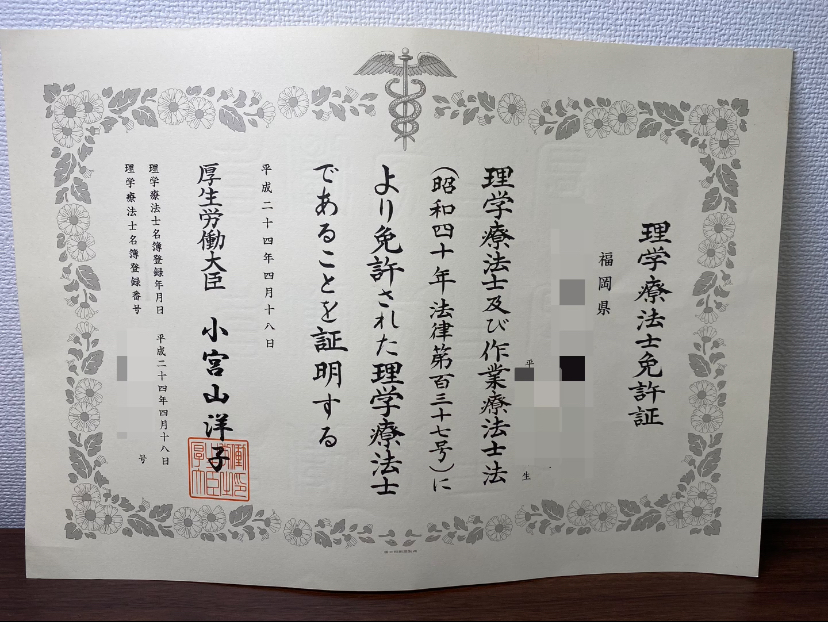 理学療法士免許証
福岡県
平
生
理学療法士及び作業療法士法
(昭和四十年法律第百三十七号)に
より免許された理学療法士
であることを証明する
平成二十四年四月十八日
厚生労働大臣 小宮山洋子
理学療法士名簿登録年月日 平成二十四年四月十八日
理学療法士名簿登録番号 号